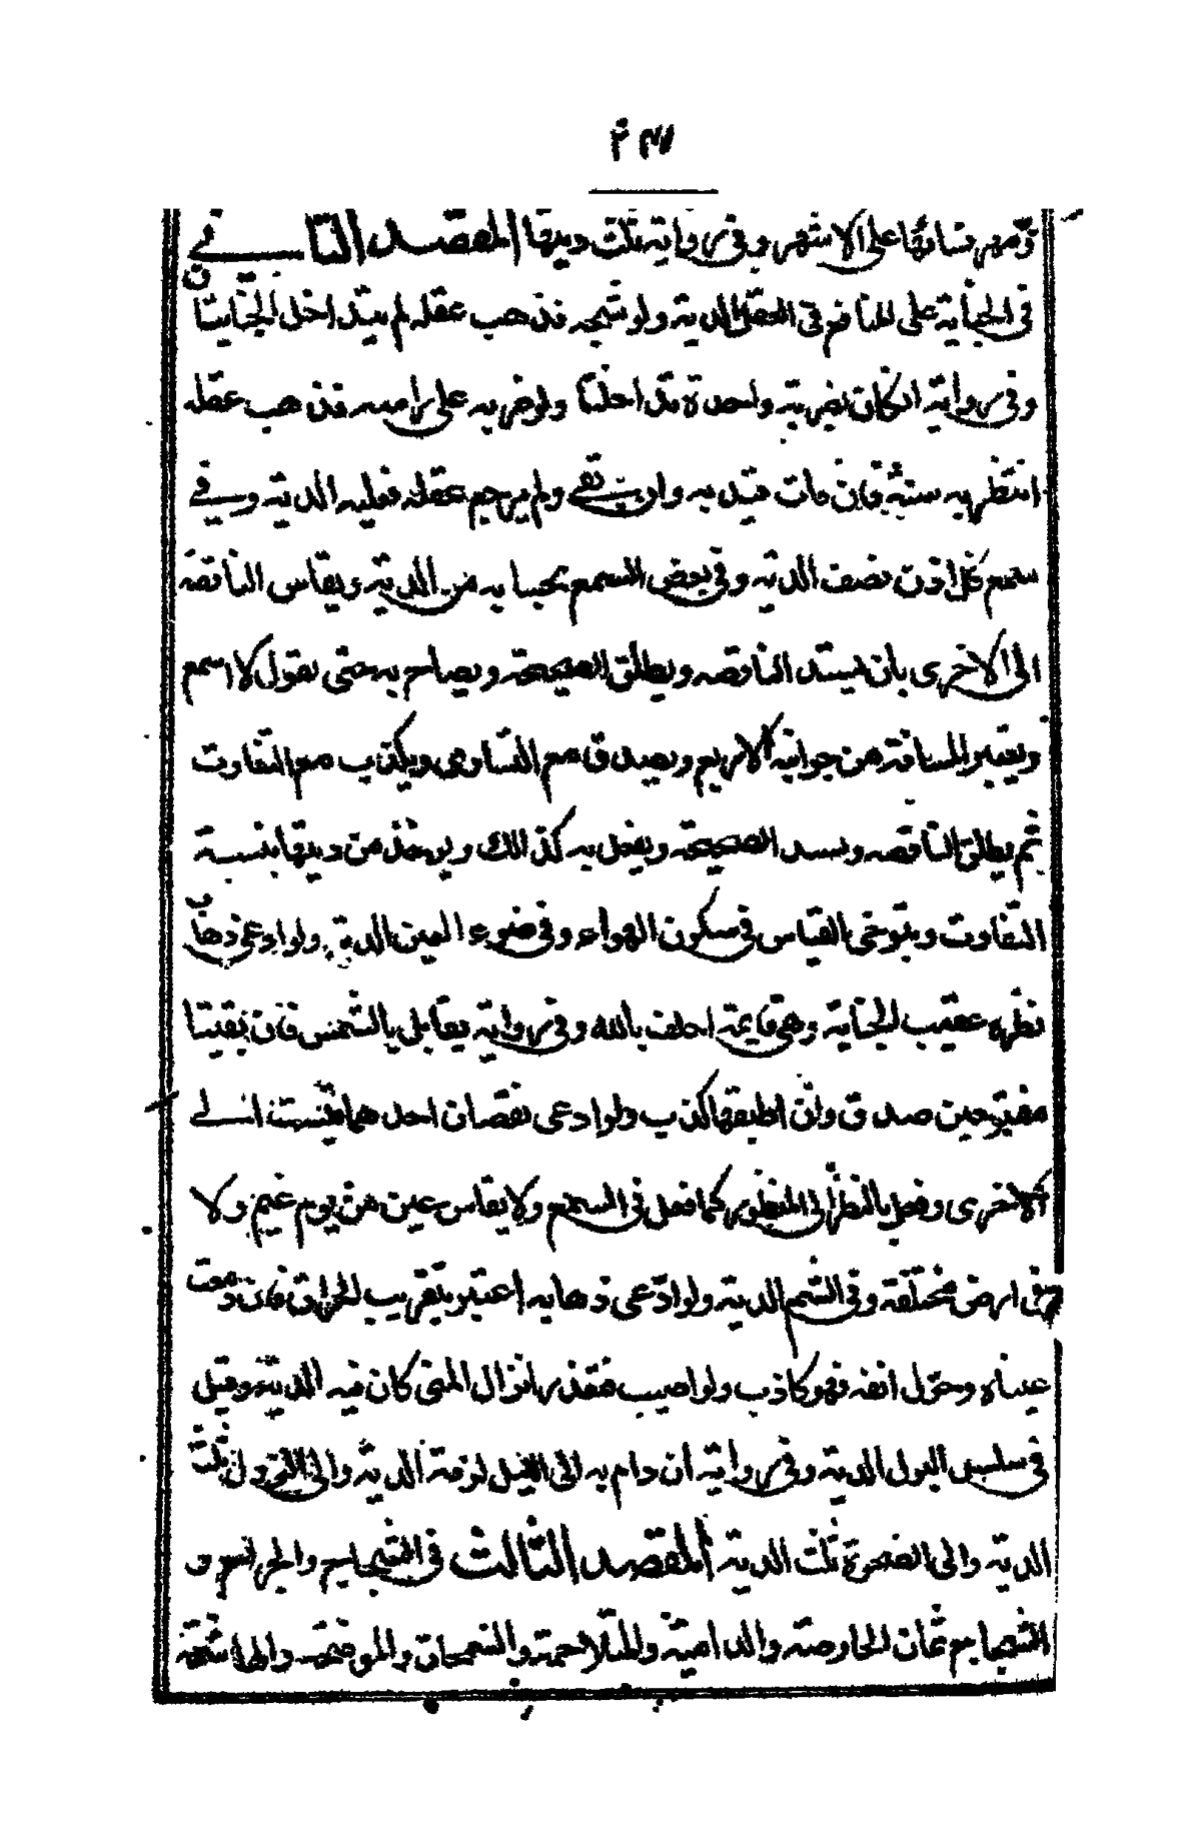 دية مهر نسائها على الاشهر وفي رواية ثلث ديتها المقصد الثاني
في الجناية على المنافع في العقل الدية ولو شجه فذهب عقله لم يتداخل الجنايتان
وفي رواية ان كان بضربة واحدة تداخلتا ولو ضربه على راسه فذهب عقله
انتظر به سنة فان مات قيد به وان بقي ولم يرجع عقله فعليه الدية وفي
سمع كل اذن نصف الدية وفي بعض السمع بحسابه من الدية ويقاس الناقصة
الى الاخرى بان يسد الناقصة ويطلق الصحيحة ويصاح به حتى يقول لا اسمع
ويعتبر المسافة من جوانبه الاربع ويصدق مع التساوى ويكذب مع التفاوت
ثم يطلق الناقصة ويسد الصحيحة ويفعل به كذلك ويوخذ من ديتها بنسبة
التفاوت ويتوخى بالقياس في سكون الهواء وفي ضوء العين الدية ولو ادعى ذهاب
نظره عقيب الجناية وهي قايمة احلف بالله وفي رواية يقابل بالشمس فان بقيتا
مفتوحين صدق وان اطبقها كذب ولو ادعى نقصان احدهما قيست الى
الاخرى وفعل بالنظر الى المنظور كما فعل في السمع ولا يقاس عين من يوم غيم ولا
في ارض مختلفة وفي الشم الدية ولو ادعى ذهابه اعتبر بتقريب الحراق فان دمعت
عيناه وحول انفه فهو كاذب ولو اصيب فتعذر انزال المنى كان فيه الدية وقيل
في سلس البول الدية وفي رواية ان دام به الى الليل لزمة الدية والى الزوال ثلثا
الدية والى الضحوة ثلث الدية المقصد الثالث في الشجاج والجراح و
الشجاج ثمان الحارصة والدامية والمتلاحمة والسمحاق والموضحة والهاشمة